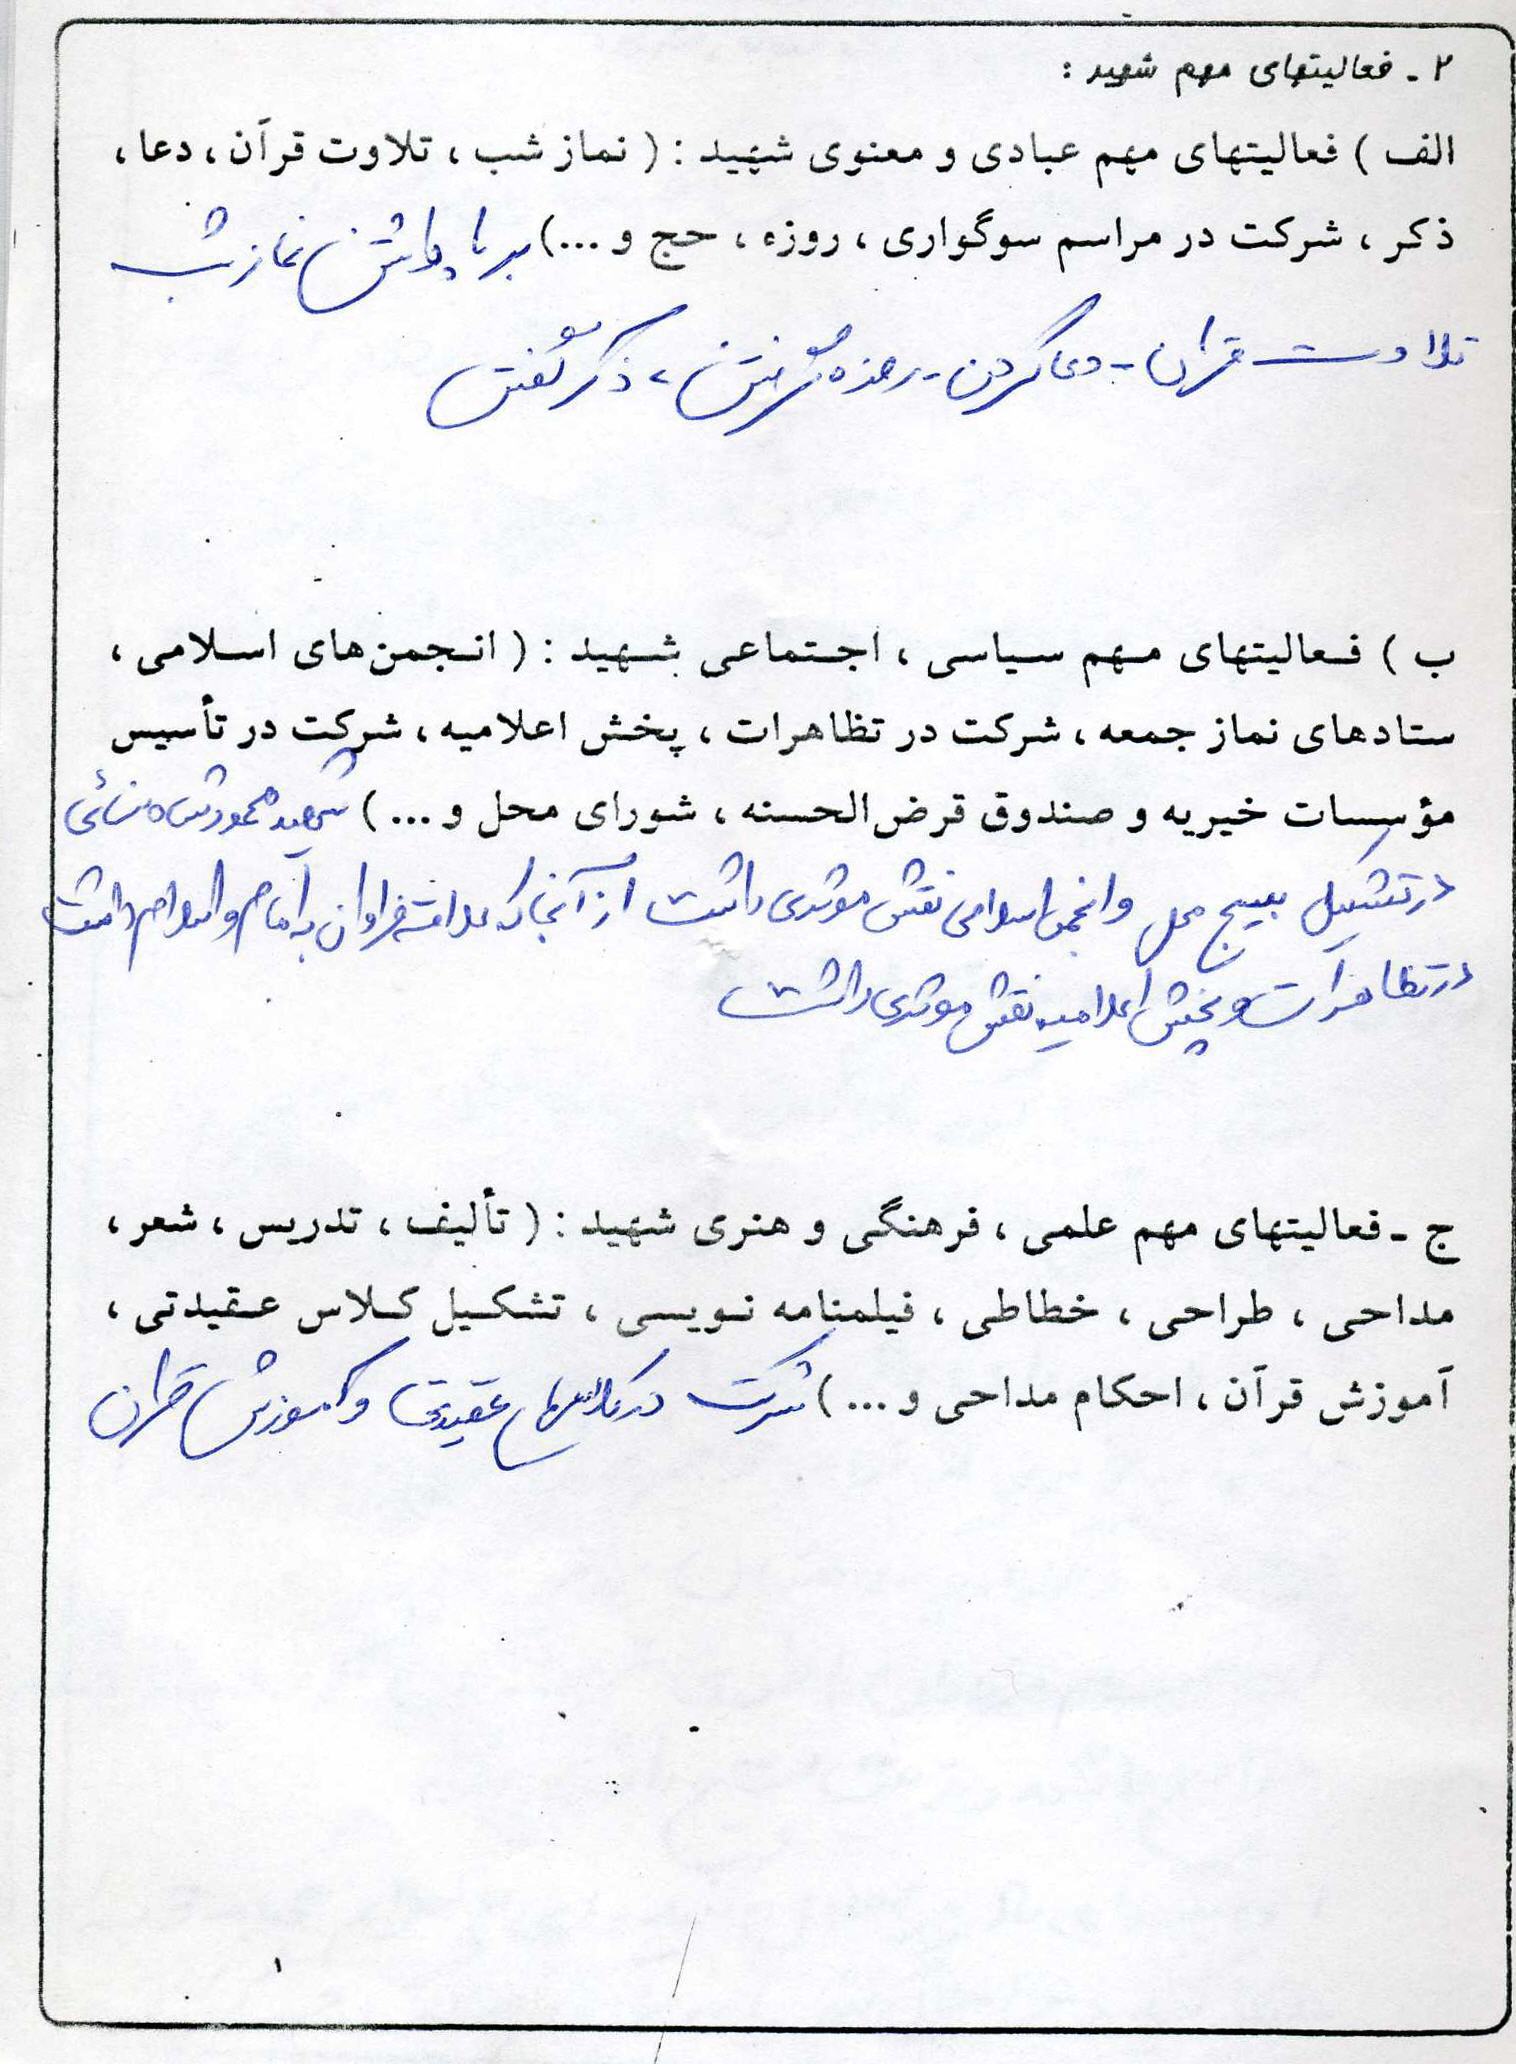 ۲ - فعالیتهای مهم شهید :
الف ) فعالیتهای مهم عبادی و معنوی شهید : ( نماز شب ، تلاوت قرآن ، دعا ،
ذکر ، شرکت در مراسم سوگواری ، روزه ، حج و ...) برپا داشتن نماز شب
تلاوت قران - دعا کردن - روزه گرفتن ، ذکر گفتن
ب ) فعالیتهای مهم سیاسی ، اجتماعی شهید : ( انجمن‌های اسلامی ،
ستادهای نماز جمعه ، شرکت در تظاهرات ، پخش اعلامیه ، شرکت در تأسیس
مؤسسات خیریه و صندوق قرض‌الحسنه ، شورای محل و ... ) شهید محمود
در تشکیل بسیج محل و انجمن اسلامی نقش موثری داشت از آنجا که علاقه فراوان به امام و اسلام داشت
در تظاهرات و پخش اعلامیه نقش موثری داشت
ج - فعالیتهای مهم علمی ، فرهنگی و هنری شهید : ( تألیف ، تدریس ، شعر ،
مداحی ، طراحی ، خطاطی ، فیلمنامه نویسی ، تشکیل کلاس عقیدتی ،
آموزش قرآن ، احکام مداحی و ... ) شرکت در کلاسهای عقیدتی و آموزش قران
۱